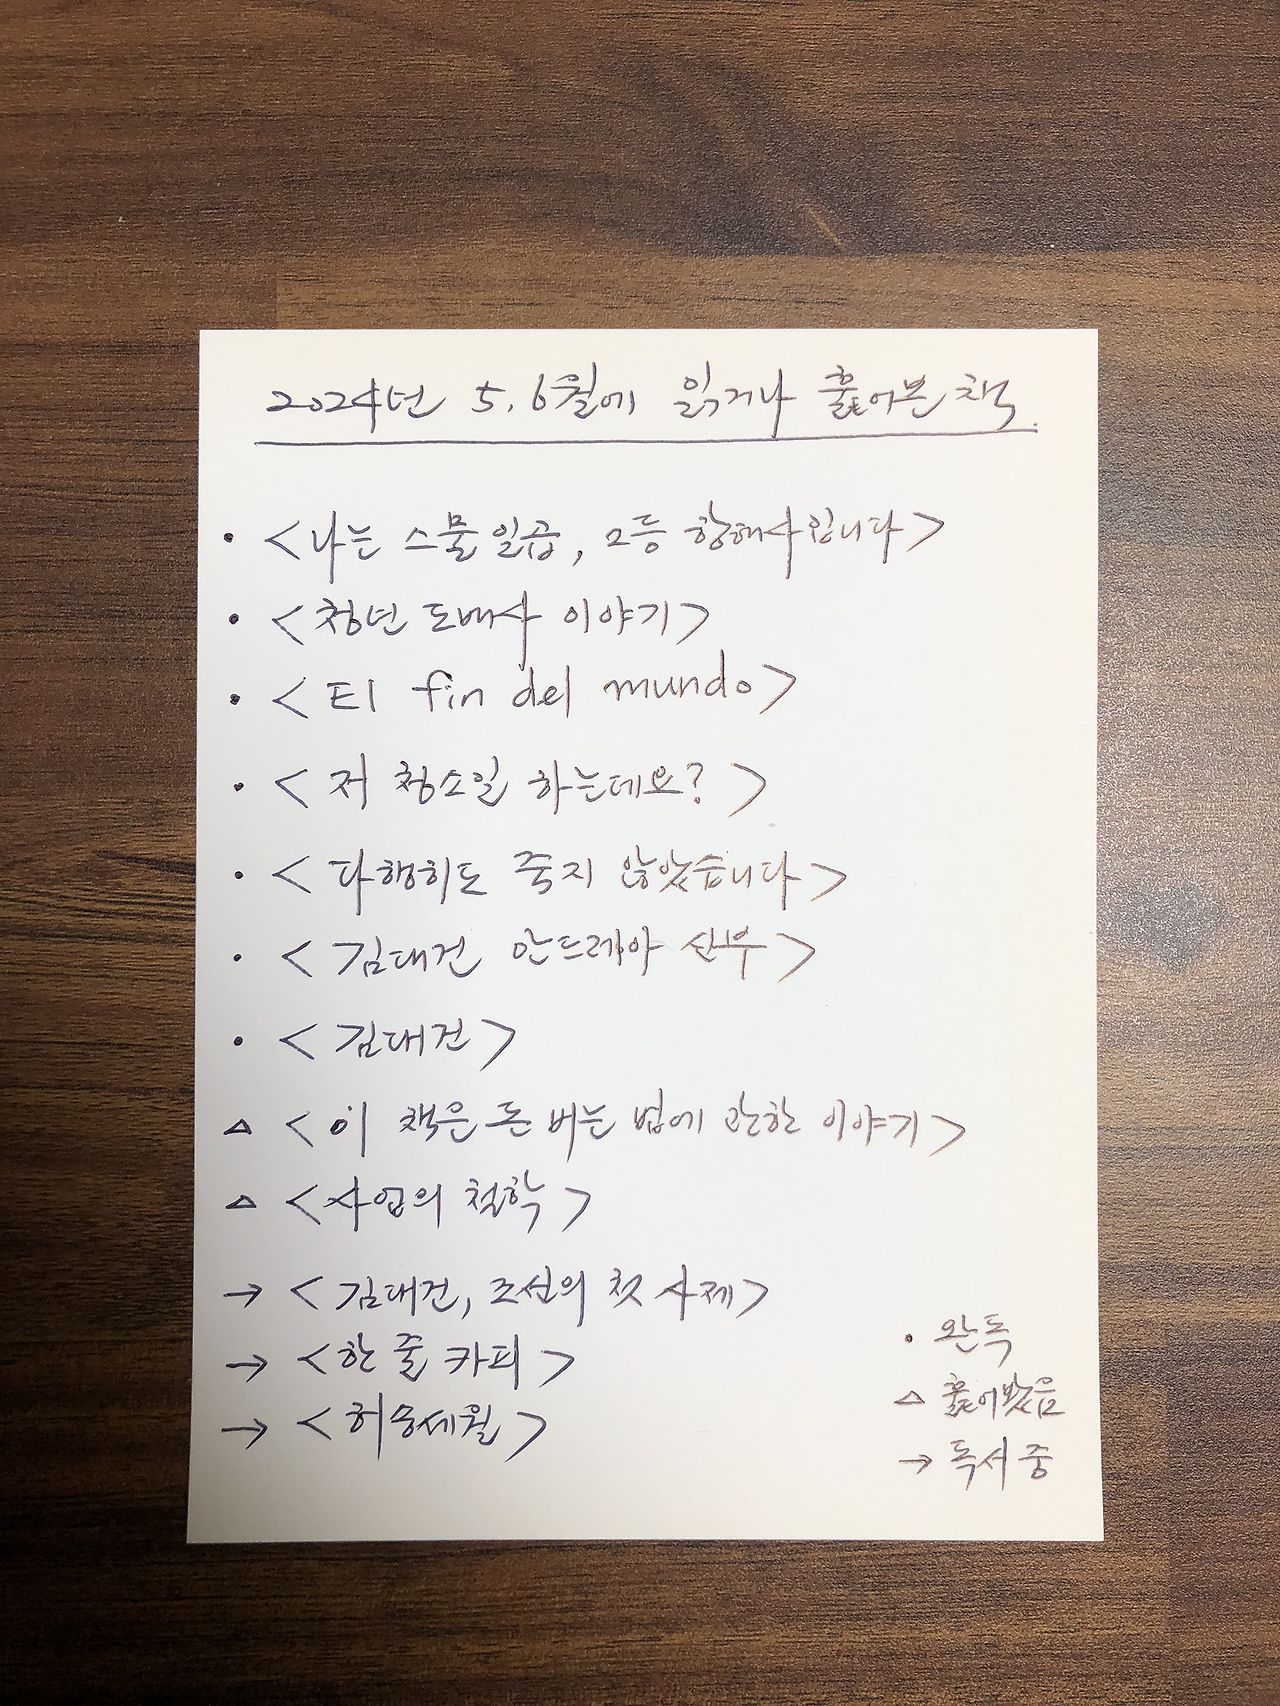 2024년 5, 6월에 읽거나 훑어본 책.
• <나는 스물일곱, 2등 항해사입니다>
• <청년 도배사 이야기>
• <El fin del mundo>
• <저 청소일 하는데요?>
• <다행히도 죽지 않았습니다>
• <김대건 안드레아 신부>
• <김대건>
△ <이 책은 돈 버는 법에 관한 이야기>
△ <사업의 철학>
→ <김대건, 조선의 첫 사제>
→ <한 줄 카피>
→ <허송세월>
• 완독
△ 훑어봤음
→ 독서 중